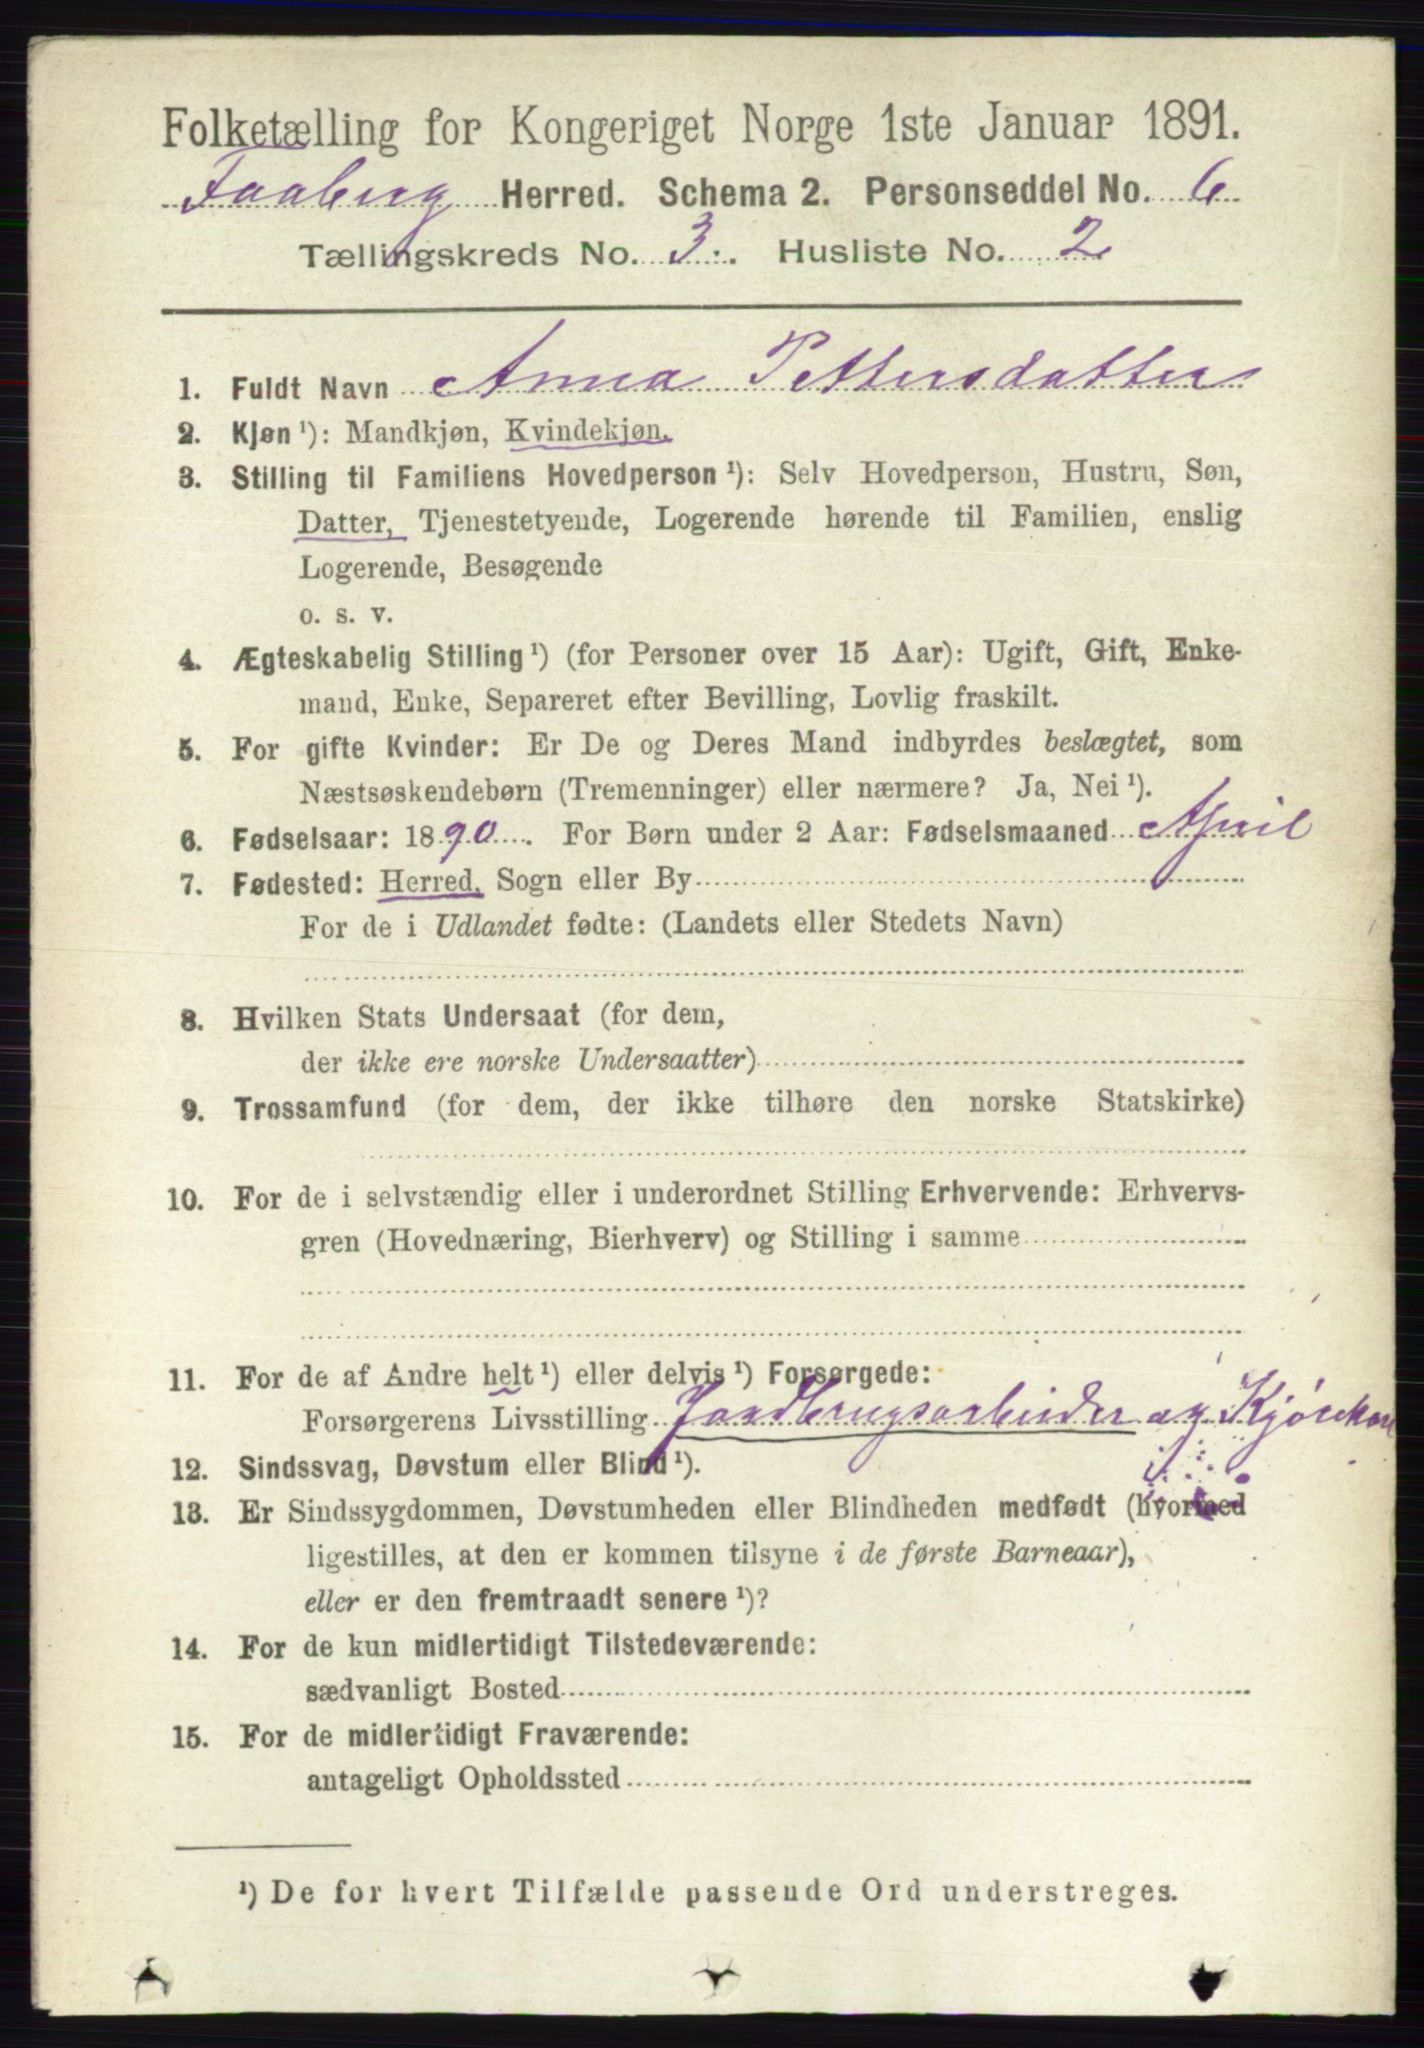 Folketælling for Kongeriget Norge 1ste Januar 1891.
Faaberg Herred. Schema 2. Personseddel No. 6
Tællingskreds No. 3. Husliste No. 2
1. Fuldt Navn Anna Pettersdatter
2. Kjøn ¹): Mandkjøn, Kvindekjøn.
3. Stilling til Familiens Hovedperson ¹): Selv Hovedperson, Hustru, Søn,
Datter, Tjenestetyende, Logerende hørende til Familien, enslig
Logerende, Besøgende
o. s. v.
4. Ægteskabelig Stilling ¹) (for Personer over 15 Aar): Ugift, Gift, Enke-
mand, Enke, Separeret efter Bevilling, Lovlig fraskilt.
5. For gifte Kvinder: Er De og Deres Mand indbyrdes beslægtet, som
Næstsøskendebørn (Tremenninger) eller nærmere? Ja, Nei ¹).
6. Fødselsaar: 1890. For Børn under 2 Aar: Fødselsmaaned April
7. Fødested: Herred, Sogn eller By
For de i Udlandet fødte: (Landets eller Stedets Navn)
8. Hvilken Stats Undersaat (for dem,
der ikke ere norske Undersaatter)
9. Trossamfund (for dem, der ikke tilhøre den norske Statskirke)
10. For de i selvstændig eller i underordnet Stilling Erhvervende: Erhvervs-
gren (Hovednæring, Bierhverv) og Stilling i samme
11. For de af Andre helt ¹) eller delvis ¹) Forsørgede:
Forsørgerens Livsstilling Jordbrugsarbeider og
12. Sindssvag, Døvstum eller Blind ¹).
13. Er Sindssygdommen, Døvstumheden eller Blindheden medfødt (hvormed
ligestilles, at den er kommen tilsyne i de første Barneaar),
eller er den fremtraadt senere ¹)?
14. For de kun midlertidigt Tilstedeværende:
sædvanligt Bosted
15. For de midlertidigt Fraværende:
antageligt Opholdssted
¹) De for hvert Tilfælde passende Ord understreges.